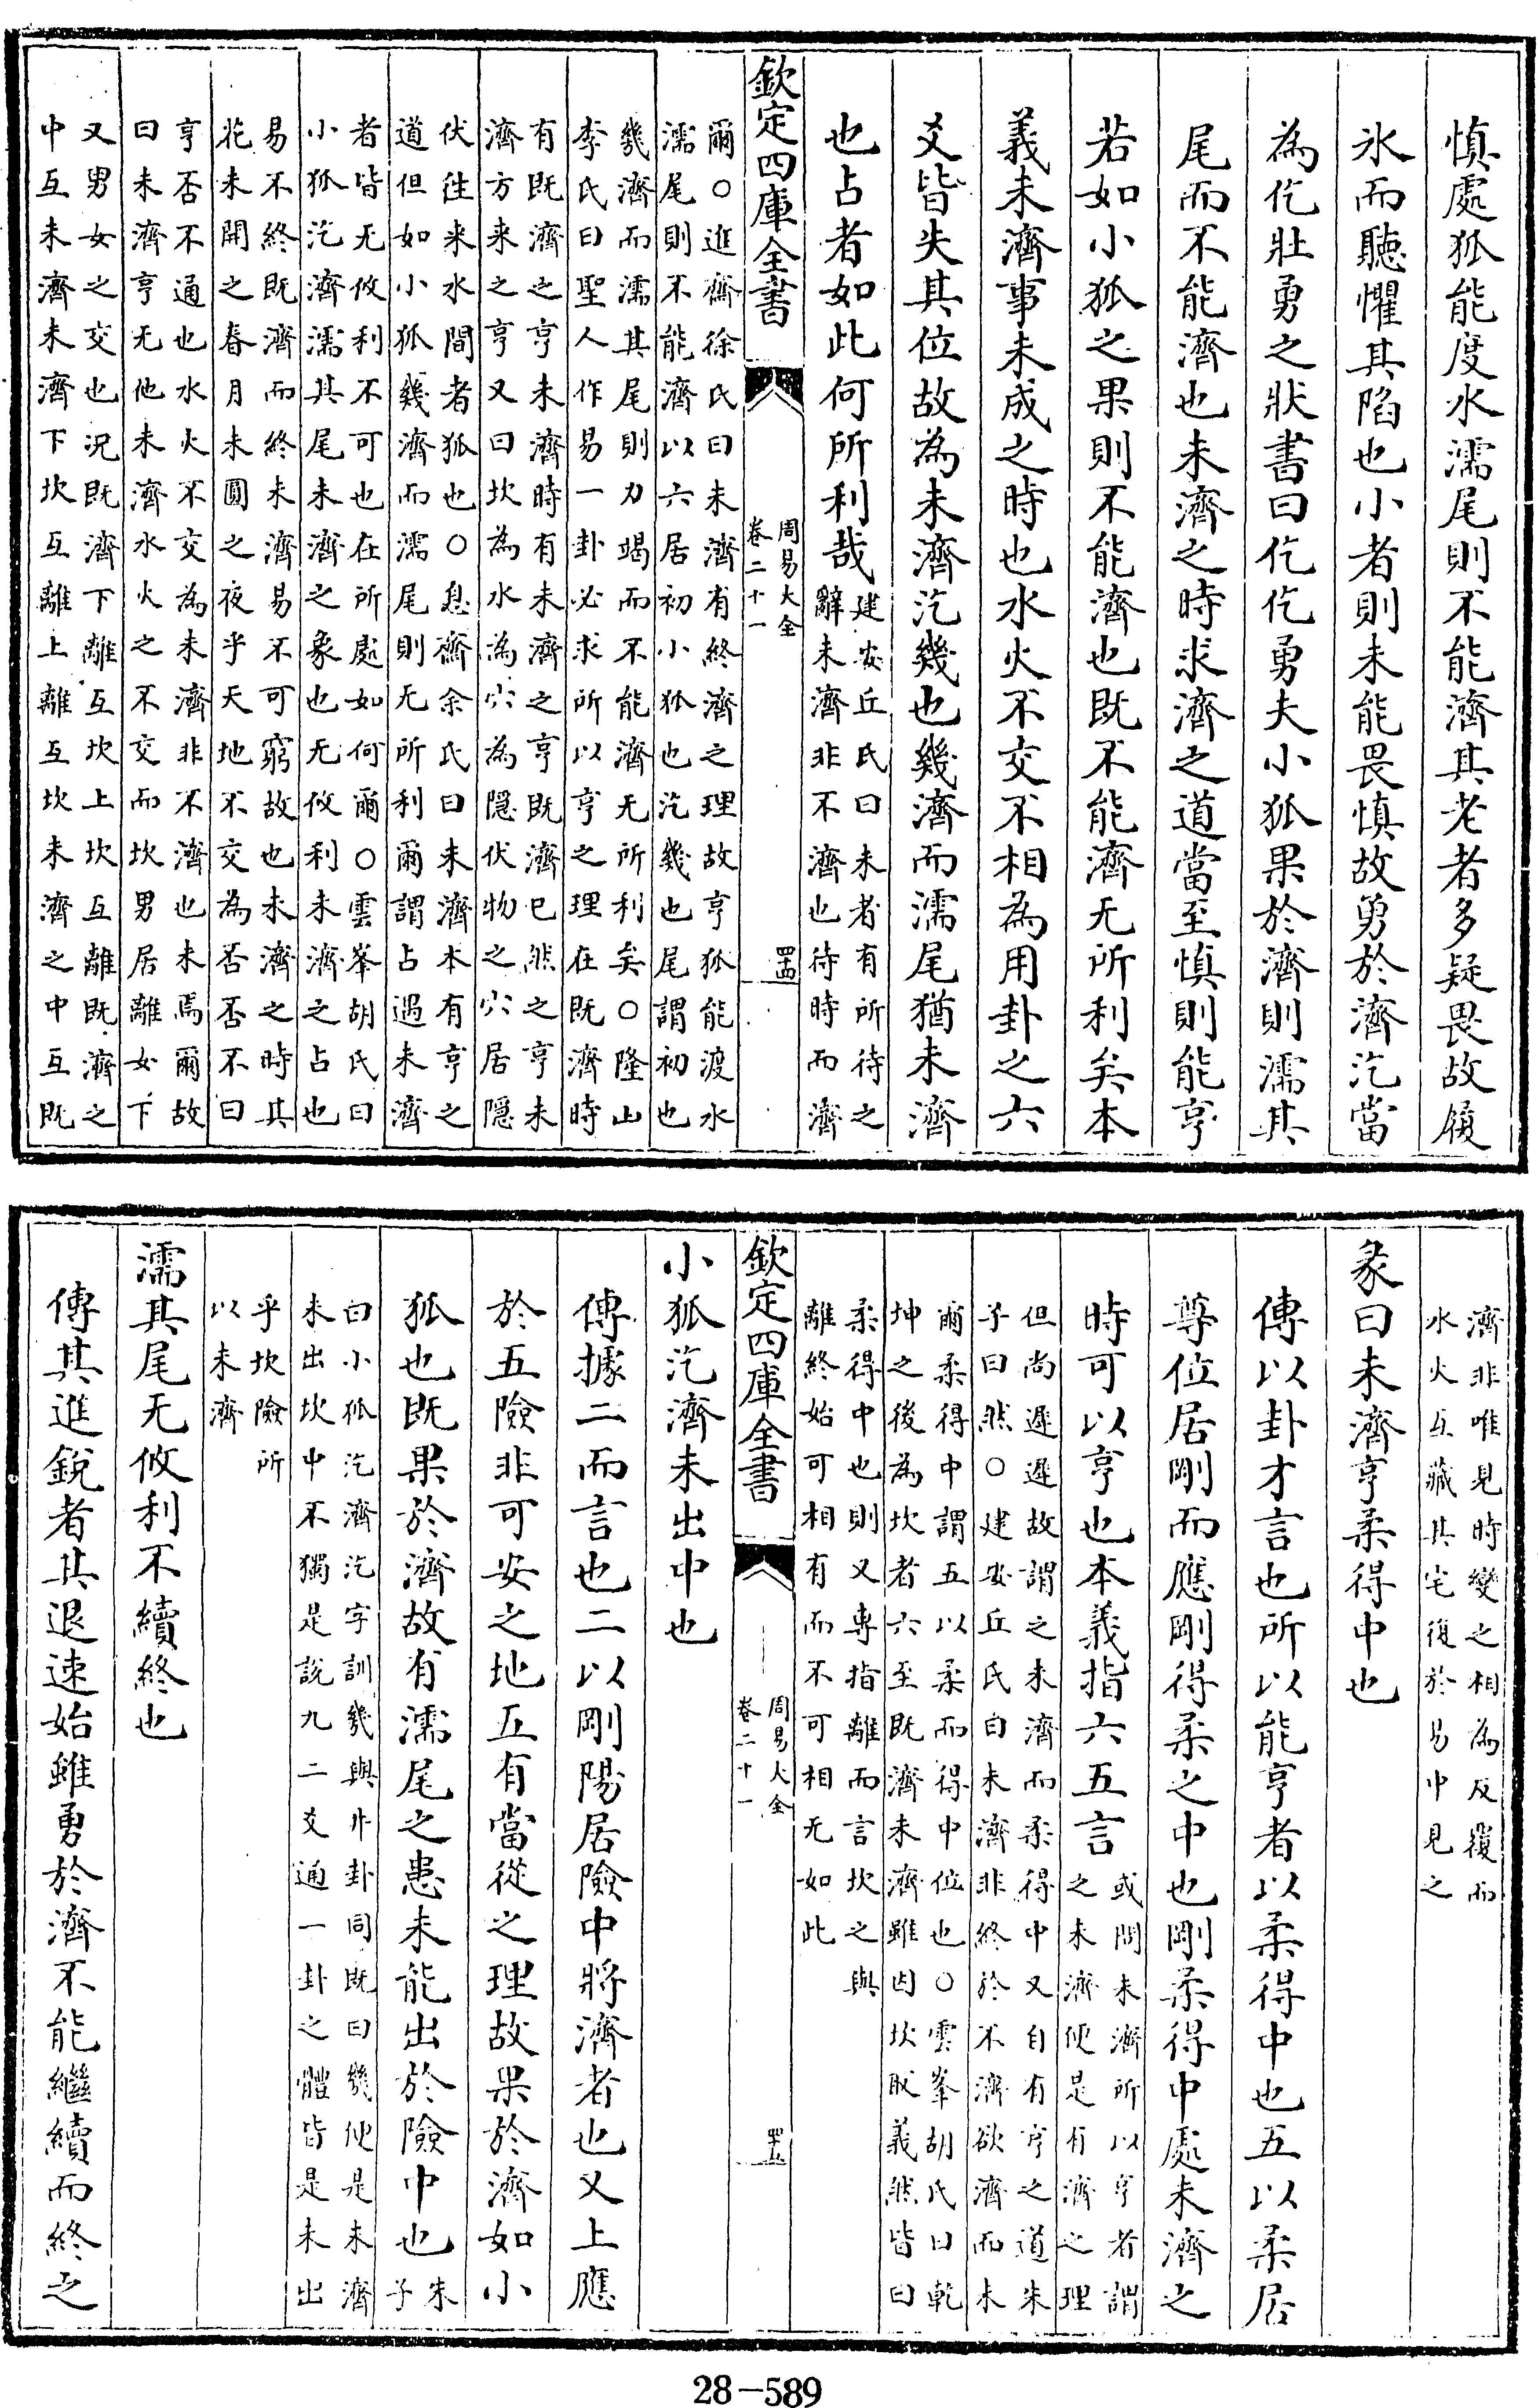 慎處狐能度水濡尾則不能濟其老者多疑畏故履
氷而聽懼其陷也小者則未能畏慎故勇於濟汔當
為仡壯勇之狀書曰仡仡勇夫小狐果於濟則濡其
尾而不能濟也未濟之時求濟之道當至慎則能亨
若如小狐之果則不能濟也既不能濟无所利矣本
義未濟事未成之時也水火不交不相為用卦之六
爻皆失其位故為未濟汔幾也幾濟而濡尾猶未濟
也占者如此何所利哉建安丘氏曰未者有所待之
辭未濟非不濟也待時而濟
欽定四庫全書
周易大全
卷二十一
四十四
爾○進齋徐氏曰未濟有終濟之理故亨狐能渡水
濡尾則不能濟以六居初小狐也汔幾也尾謂初也
幾濟而濡其尾則力竭而不能濟无所利矣○隆山
李氏曰聖人作易一卦必求所以亨之理在既濟時
有既濟之亨未濟時有未濟之亨既濟已然之亨未
濟方来之亨又曰坎為水為穴為隱伏物之穴居隱
伏往来水間者狐也○息齋余氏曰未濟本有亨之
道但如小狐幾濟而濡尾則无所利爾謂占遇未濟
者皆无攸利不可也在所處如何爾○雲峯胡氏曰
小狐汔濟濡其尾未濟之象也无攸利未濟之占也
易不終既濟而終未濟易不可窮故也未濟之時其
花未開之春月未圓之夜乎天地不交為否否不曰
亨否不通也水火不交為未濟非不濟也未焉爾故
曰未濟亨无他未濟水火之不交而坎男居離女下
又男女之交也況既濟下離互坎上坎互離既濟之
中互未濟未濟下坎互離上離互坎未濟之中互既
濟非唯見時變之相為反覆而
水火互藏其宅復於易中見之
彖曰未濟亨柔得中也
傳以卦才言也所以能亨者以柔得中也五以柔居
尊位居剛而應剛得柔之中也剛柔得中處未濟之
時可以亨也本義指六五言或問未濟所以亨者謂
之未濟便是有濟之理
但尚遲遲故謂之未濟而柔得中又自有亨之道朱
子曰然○建安丘氏曰未濟非終於不濟欲濟而未
爾柔得中謂五以柔而得中位也○雲峯胡氏曰乾
坤之後為坎者六至既濟未濟雖因坎取義然皆曰
柔得中也則又專指離而言坎之與
離終始可相有而不可相无如此
欽定四庫全書
周易大全
卷二十一
四十五
小狐汔濟未出中也
傳據二而言也二以剛陽居險中將濟者也又上應
於五險非可安之地五有當從之理故果於濟如小
狐也既果於濟故有濡尾之患未能出於險中也朱
子
曰小狐汔濟汔字訓幾與井卦同既曰幾便是未濟
未出坎中不獨是說九二爻通一卦之體皆是未出
乎坎險所
以未濟
濡其尾无攸利不續終也
傳其進銳者其退速始雖勇於濟不能繼續而終之
28-589